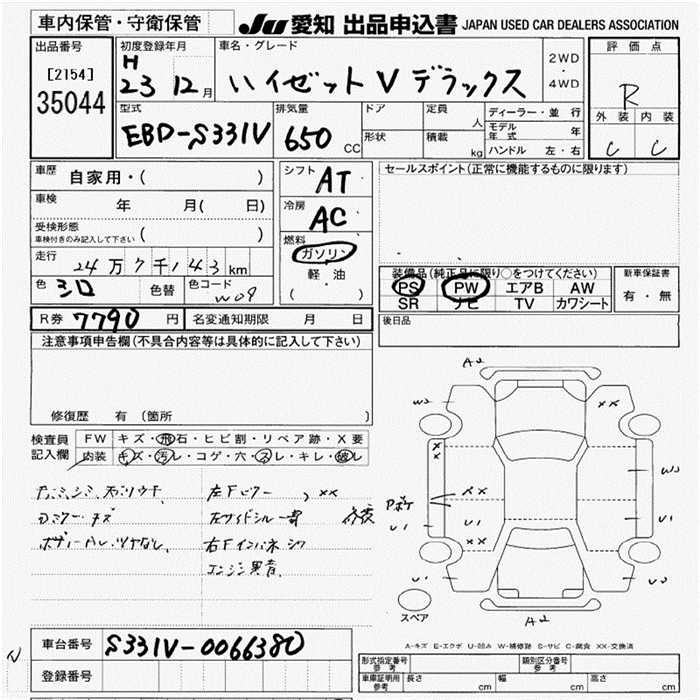 車内保管・守衛保管
JU 愛知 出品申込書 JAPAN USED CAR DEALERS ASSOCIATION
出品番号
[2154]
35044
初度登録年月
H
23 12月
車名・グレード
ハイゼットV デラックス
2WD
・
4WD
評価点
R
外装 内装
C C
型式
EBD-S331V
排気量
650 CC
ドア
形状
定員
人
積載
kg
ディーラー・並行
モデル年式 年
ハンドル 左・右
車歴
自家用・( )
車検
年 月( 日)
受検形態
車検付きのみ記入して下さい ( )
走行
24万7千143km
色
シロ
色替
色コード
W09
シフト
AT
冷房
AC
燃料
ガソリン
軽油
( )
セールスポイント(正常に機能するものに限ります)
装備品(純正品に限り○をつけてください)
PS PW エアB AW
SR ナビ TV カワシート
新車保証書
有・無
後日品
R券 7790 円
名変通知期限 月 日
注意事項申告欄(不具合内容等は具体的に記入して下さい)
修復歴 有 (箇所 )
検査員
記入欄
FW キズ・飛石・ヒビ割・リペア跡・X要
内装 キズ・汚レ・コゲ・穴・スレ・キレ・破レ
左サイドシル一部
右Fインパネ
エンジン異音
A2
W2
XX
X
X
W3
XX
Pボケ
U1
U1
XX
U1
U3
A2
スペア
A-キズ E-エクボ U-凹み W-補修跡 S-サビ C-腐食 XX-交換済
車台番号
S331V-0066380
登録番号
N
型式指定番号
参考
類別区分番号
参考
車庫証明用
参考
長さ cm
幅 cm
高さ cm